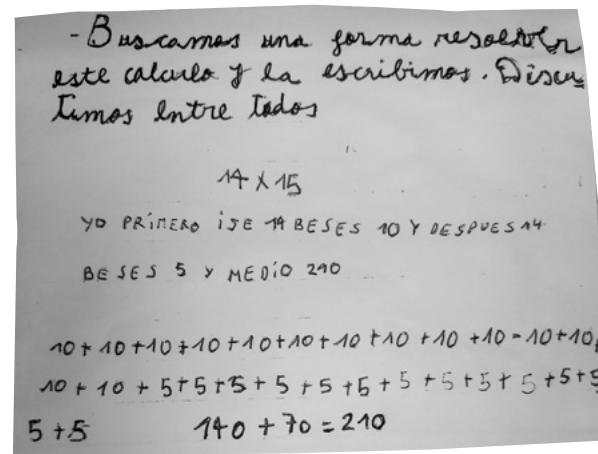 - Buscamos una forma resolver
este calculo y la escribimos. Discu
timos entre todos
14 x 15
YO PRIMERO iJE 14 BESES 10 Y DESPUES 14
BESES 5 Y MEDiO 210
10+10+10+10+10+10+10+10+10+10-10+10
10+10+5+5+5+5+5+5+5+5+5+5+5+5
5+5 140+70=210